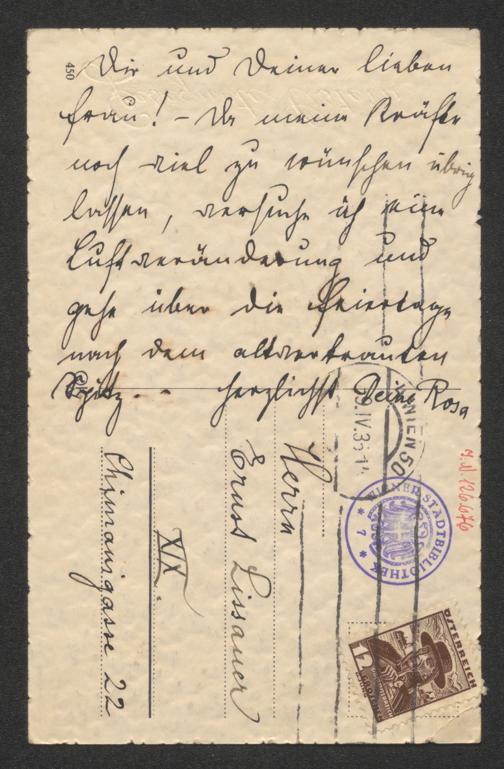 450
Dir und Deiner lieben
Frau! – Da meine Kräfte
noch viel zu wünschen übrig
lassen, versuche ich eine
Luftveränderung und
gehe über die Feiertage
nach dem altvertrauten
Spitz. herzlichst Deine Rosa
WIEN 50
IV.36
Herrn
Ernst Lissauer
XIX.
Chimanigasse 22
WIENER STADTBIBLIOTHEK
* 7 *
ÖSTERREICH
12